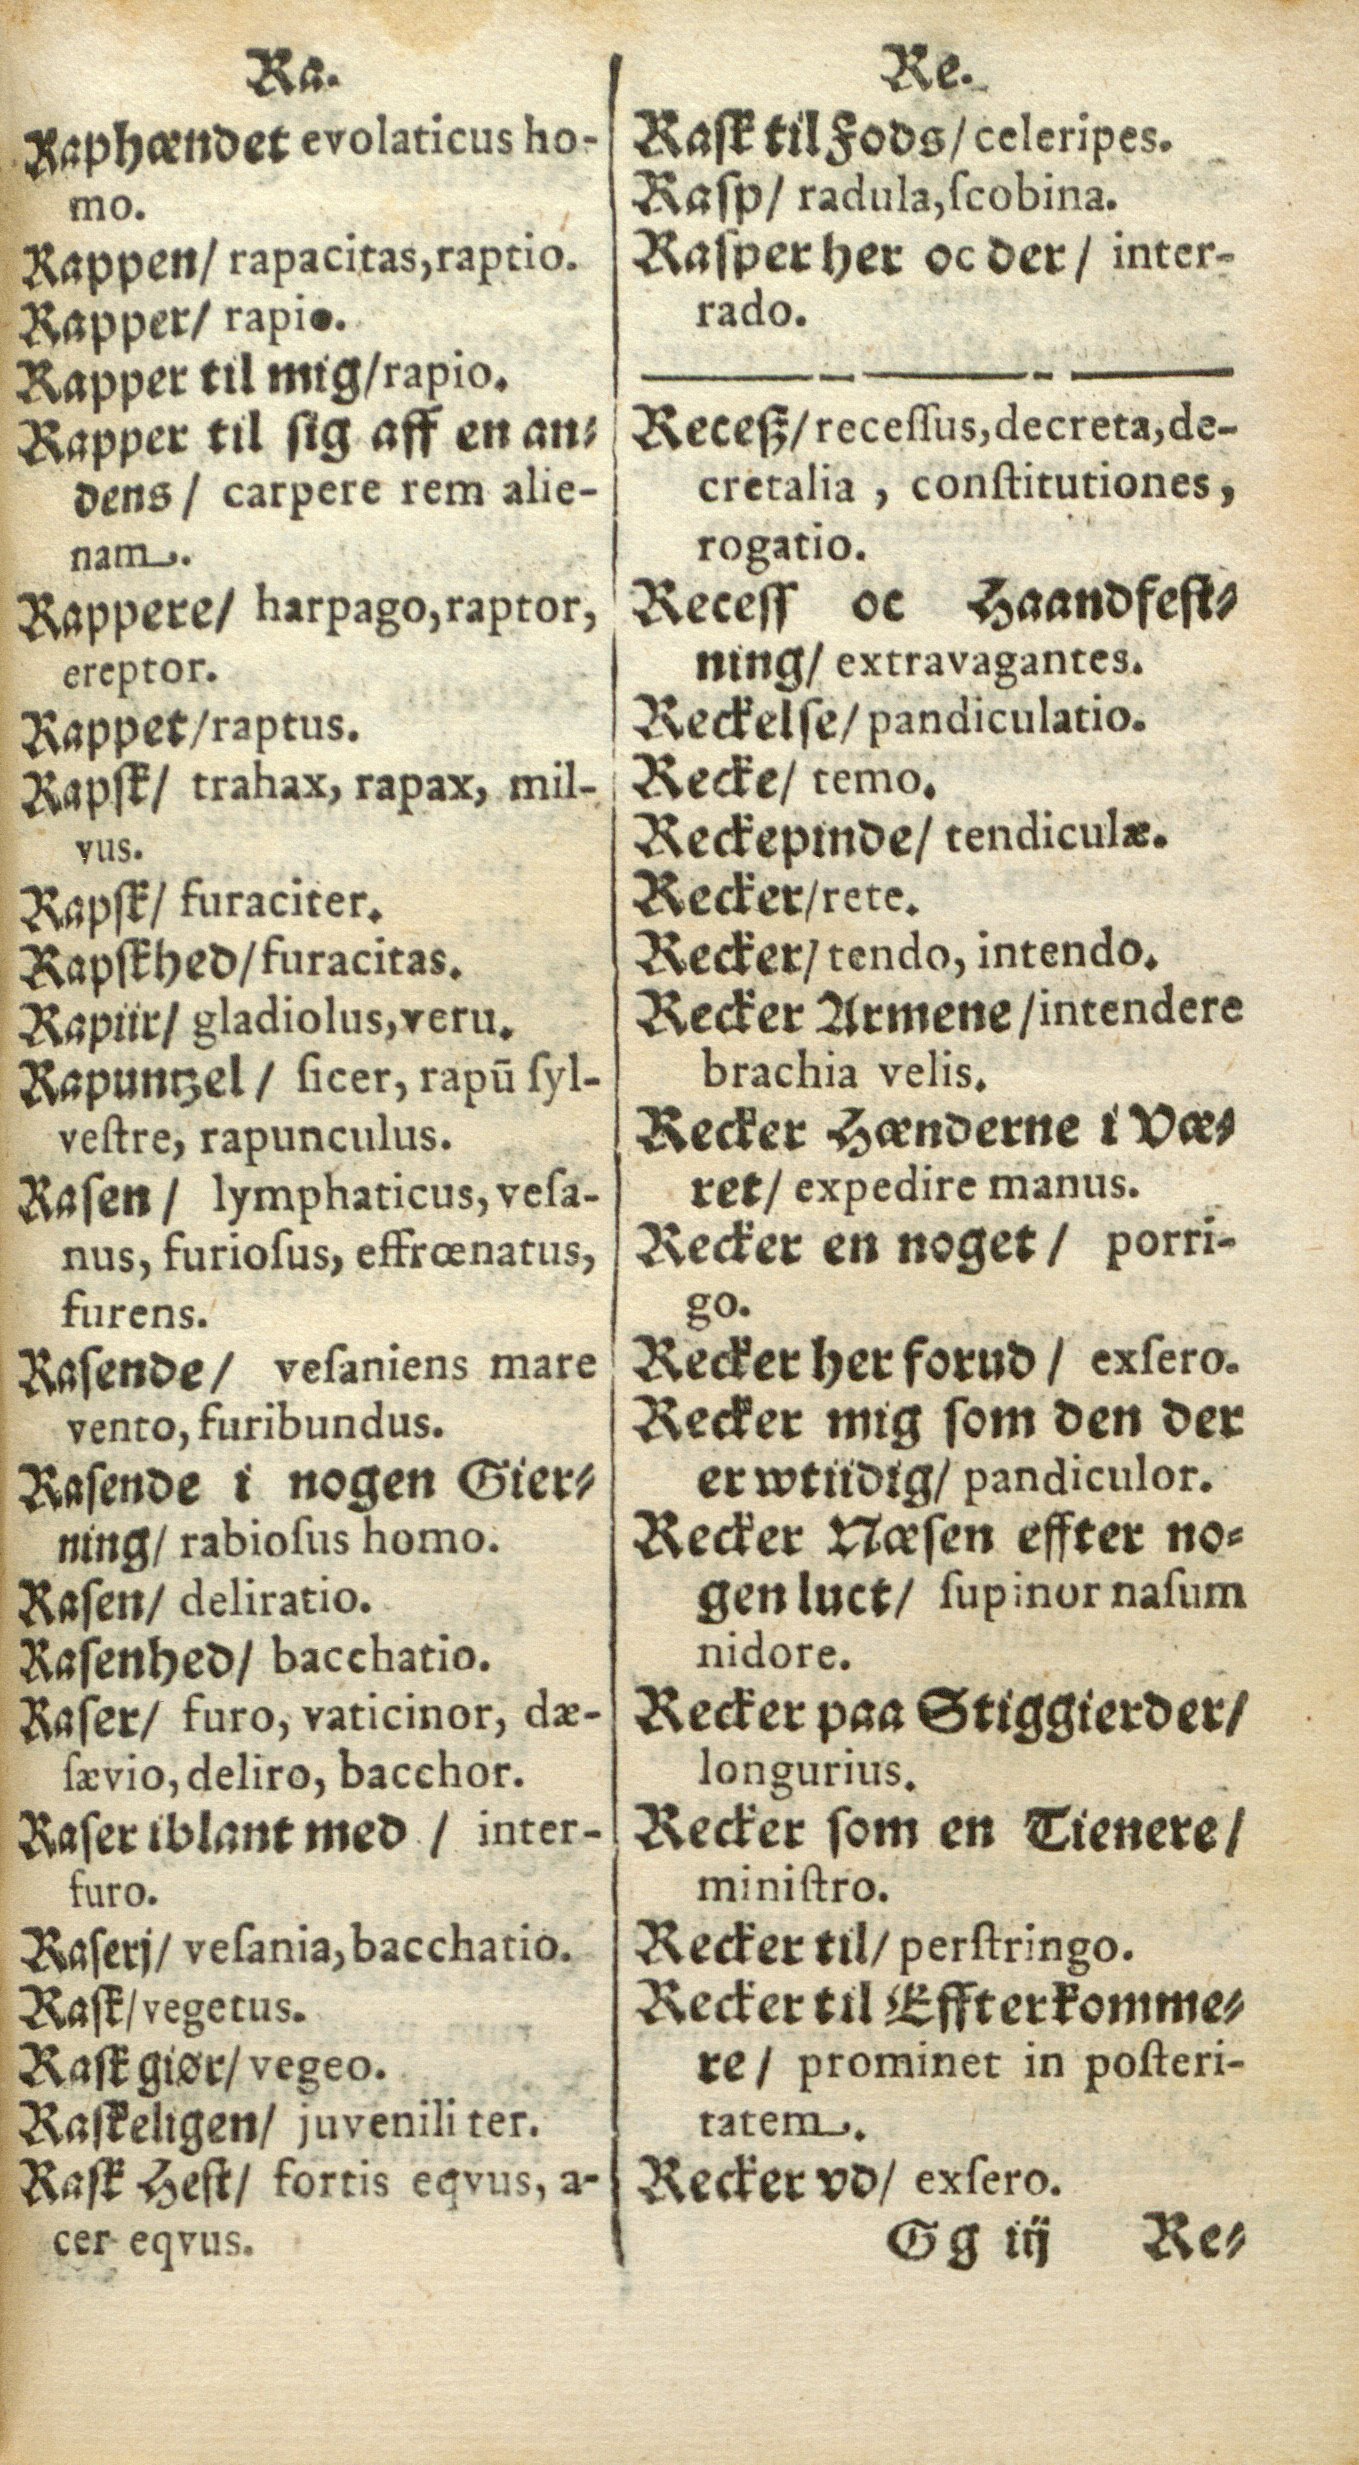 Ra.
Raphændet evolaticus ho-
mo.
Rappen/ rapacitas, raptio.
Rapper/ rapio.
Rapper til mig/rapio.
Rapper til ſig aff en an-
dens/ carpere rem alie-
nam.
Rappere/ harpago, raptor,
ereptor.
Rappet/raptus.
Rapſk/ trahax, rapax, mil-
vus.
Rapſk/ furaciter.
Rapſkhed/furacitas.
Rapiir/ gladiolus, veru.
Rapuntzel/ ſicer, rapū ſyl-
veſtre, rapunculus.
Raſen/ lymphaticus, veſa-
nus, furioſus, effrœnatus,
furens.
Raſende/ veſaniens mare
vento, furibundus.
Raſende i nogen Gier-
ning/ rabioſus homo.
Raſen/ deliratio.
Raſenhed/ bacchatio.
Raſer/ furo, vaticinor, dæ-
ſævio, deliro, bacchor.
Raſer iblant med/ inter-
furo.
Raſerj/ veſania, bacchatio.
Raſk/vegetus.
Raſk giør/ vegeo.
Raſkeligen/ juveniliter.
Raſk Heſt/ fortis eqvus, a-
cer eqvus.
Re.
Raſk til Fods/ celeripes.
Raſp/ radula, ſcobina.
Raſper her oc der/ inter-
rado.
Receß/ receſſus, decreta, de-
cretalia, conſtitutiones,
rogatio.
Receſſ oc Haandfeſt-
ning/ extravagantes.
Reckelſe/ pandiculatio.
Recke/ temo.
Reckepinde/ tendiculæ.
Recker/rete.
Recker/ tendo, intendo.
Recker Armene/intendere
brachia velis.
Recker Hænderne i Væ-
ret/ expedire manus.
Recker en noget/ porri-
go.
Recker her forud/ exſero.
Recker mig ſom den der
er wtiidig/ pandiculor.
Recker Næſen effter no-
gen luct/ ſupinor naſum
nidore.
Recker paa Stiggierder/
longurius.
Recker ſom en Tienere/
miniſtro.
Recker til/ perſtringo.
Recker til Effterkomme-
re/ prominet in poſteri-
tatem.
Recker vd/ exſero.
Gg iij Re-